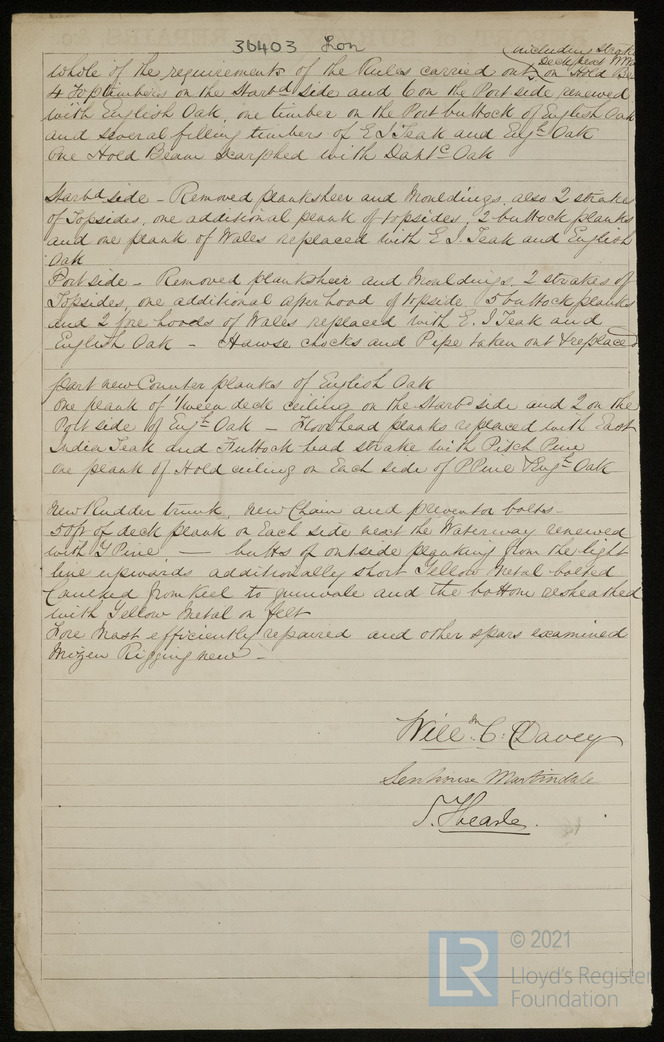 36403 Lon
including Strake
Deck next W Wa
Whole of the requirements of the Rules carried out, on Hold Bea
4 Toptimbers on the Starbd side and 6 on the Port side renewed
with English Oak, one timber on the Port buttock of English Oak
and several filling timbers of E I Teak and Engh Oak
One Hold Beam scarphed with Dantc Oak
Starbd side - Removed planksheer and Mouldings, also 2 strakes
of Topsides, one additional plank of topsides, 2 buttock planks
and one plank of Wales replaced with E I. Teak and English
Oak
Port side - Removed planksheer and Mouldings, 2 strakes of
Topsides, one additional after hood of topside, 5 buttock planks
and 2 fore hoods of Wales replaced with E. I Teak and
English Oak - Hawse chocks and Pipe taken out & replaced
part new Counter planks of English Oak
One plank of 'tween deck ceiling on the Starbd side and 2 on the
Port side of Engh Oak - Floorhead planks replaced with East
India Teak and Futtock head strake with Pitch Pine
one plank of Hold ceiling on Each side of P Pine & Engh Oak
New Rudder trunk, new Chain and preventor bolts -
50 ft of deck plank on Each side next the Waterway renewed
with Y Pine - butts of outside planking from the light
line upwards additionally short Yellow Metal bolted
Caulked from Keel to gunwale and the bottom resheathed
with Yellow Metal on felt
Fore Mast efficiently repaired and other spars examined
Mizen Rigging new -
Willm C. Davey
Senhouse Martindale
J. Hearle.
LR © 2021
Lloyd's Register
Foundation